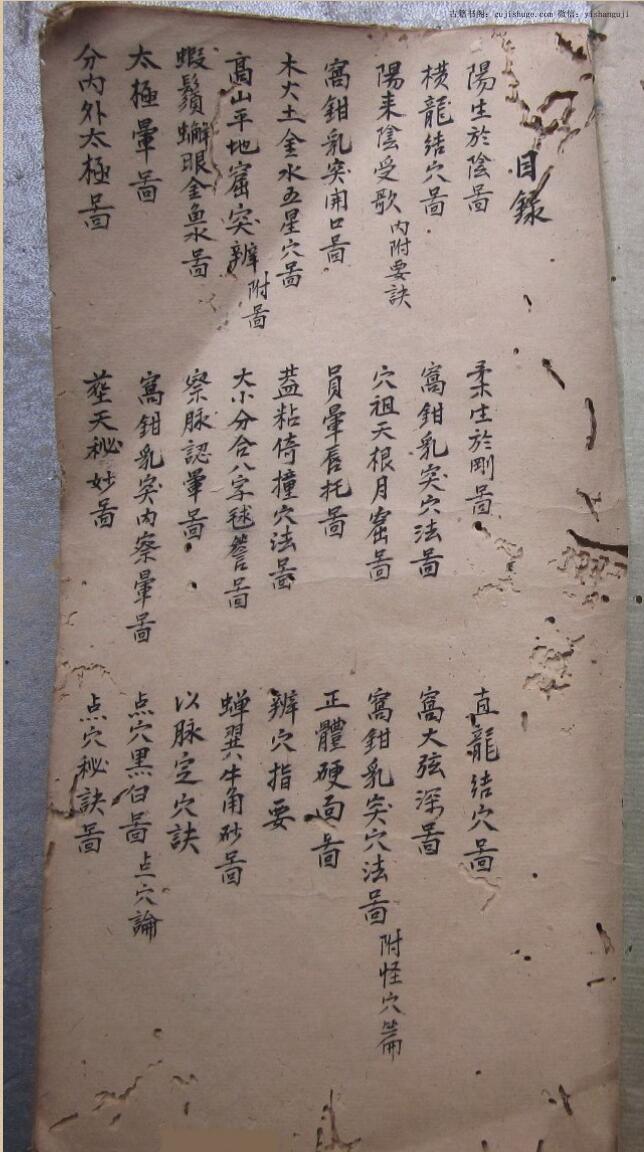 古籍书阁：gujishuge.com 微信：yishanguji
目錄
陽生於陰圖 柔生於剛圖 直龍結穴圖
橫龍結穴圖 窩鉗乳突穴法圖 窩大弦深圖
陽来陰受歌 内附要訣 穴祖天根月窟圖 窩鉗乳突穴法圖 附怪穴篇
窩鉗乳突開口圖 員暈唇托圖 正體硬面圖
木火土金水五星穴圖 葢粘倚撞穴法圖 辨穴指要
高山平地窟突辨 附圖 大小分合八字毬簷圖 蝉翼牛角砂圖
蝦鬚蠏眼金魚水圖 察脉認暈圖 以脉定穴訣
太極暈圖 窩鉗乳突内察暈圖 点穴黒白圖 点穴論
分内外太極圖 塟天秘妙圖 点穴秘訣圖